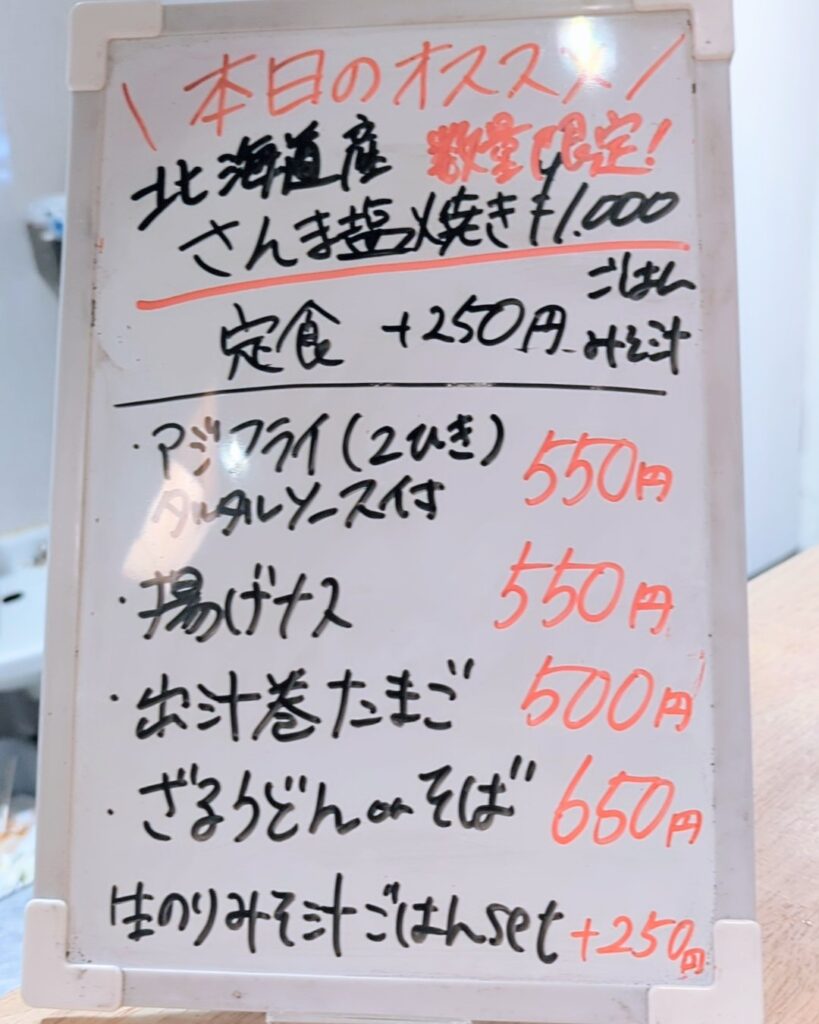 \ 本日のオススメ /
北海道産 数量限定!
さんま塩焼き ¥1.000
定食 +250円 ごはん
みそ汁
・アジフライ(2ひき) 550円
タルタルソース付
・揚げナス 550円
・出汁巻たまご 500円
・ざるうどんorそば 650円
生のりみそ汁ごはんset +250円